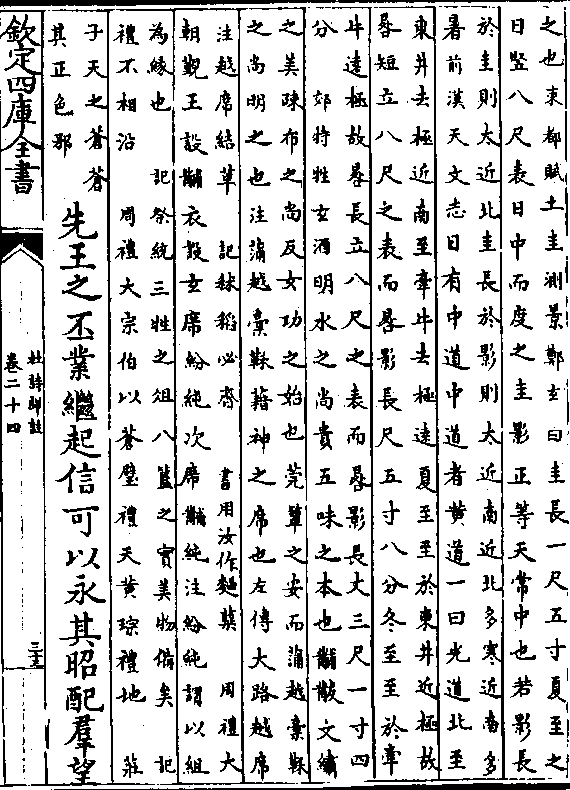 之也東都賦土圭測景鄭玄曰圭長一尺五寸夏至之
日竪八尺表日中而度之圭影正等天當中也若影長
於圭則太近北圭長於影則太近南近北多寒近南多
暑前漢天文志日有中道中道者黄道一曰光道北至
東井去極近南至牽牛去極逺夏至至於東井近極故
晷短立八尺之表而晷影長尺五寸八分冬至至於牽
牛逺極故晷長立八尺之表而晷影長丈三尺一寸四
分 郊特牲玄酒明水之尚貴五味之本也黼黻文繡
之美疎布之尚反女功之始也莞簟之安而蒲越稾鞂
之尚明之也注蒲越稾鞂藉神之席也左傳大路越席
注越席結草 記秫稻必齊 書用汝作麴糵 周禮大
朝覲王設黼衣設玄席紛純次席黼純注紛純謂以組
為緣也 記祭統三牲之俎八簋之實美物備矣 記
禮不相沿 周禮大宗伯以蒼璧禮天黄琮禮地 莊
子天之蒼蒼
其正色邪
先王之丕業繼起信可以永其昭配羣望
欽定四庫全書
杜詩詳註
卷二十四
三十三